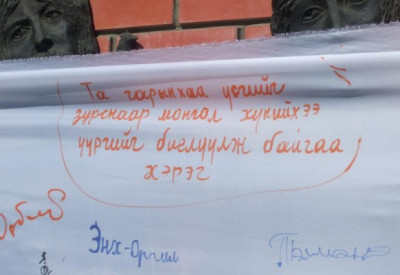 Та гарынхаа үсгийг
зурснаар монгол хүнийхээ
үүргийг биелүүлж байгаа
хэрэг
Энх-Оргил